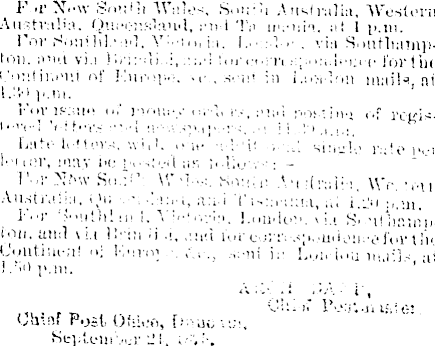 For New South Wales, South Australia, Western
Australia, Queensland, and Tasmania, at 1 p.m.
For Southland, Victoria, London, via Southamp-
ton, and via Brindisi, and for correspondence for the
Continent of Europe, &c., sent in London mails, at
1.30 p.m.
For issue of money orders, and posting of regis-
tered letters and newspapers, at
Late letters, with one additional single rate per
letter, may be posted as follows: –
For New South Wales, South Australia, Western
Australia, Queensland, and Tasmania, at 1.20 p.m.
For Southland, Victoria, London, via Southamp-
ton, and via Brindisi, and for correspondence for the
Continent of Europe, &c., sent in London mails, at
1.50 p.m.
Chief Postmaster.
Chief Post Office, Dunedin,
September 21,